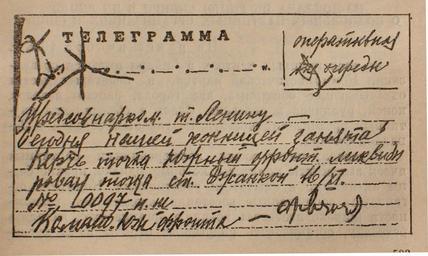 ТЕЛЕГРАММА
оперативная
вне очереди
Предсовнарком. т. Ленину
Сегодня нашей конницей занята
Керчь точка южный фронт ликвиди
рован точка ст. Джанкой 16/XI.
№ 0097 п. пк
Команд. Юж фронта — Фрунзе